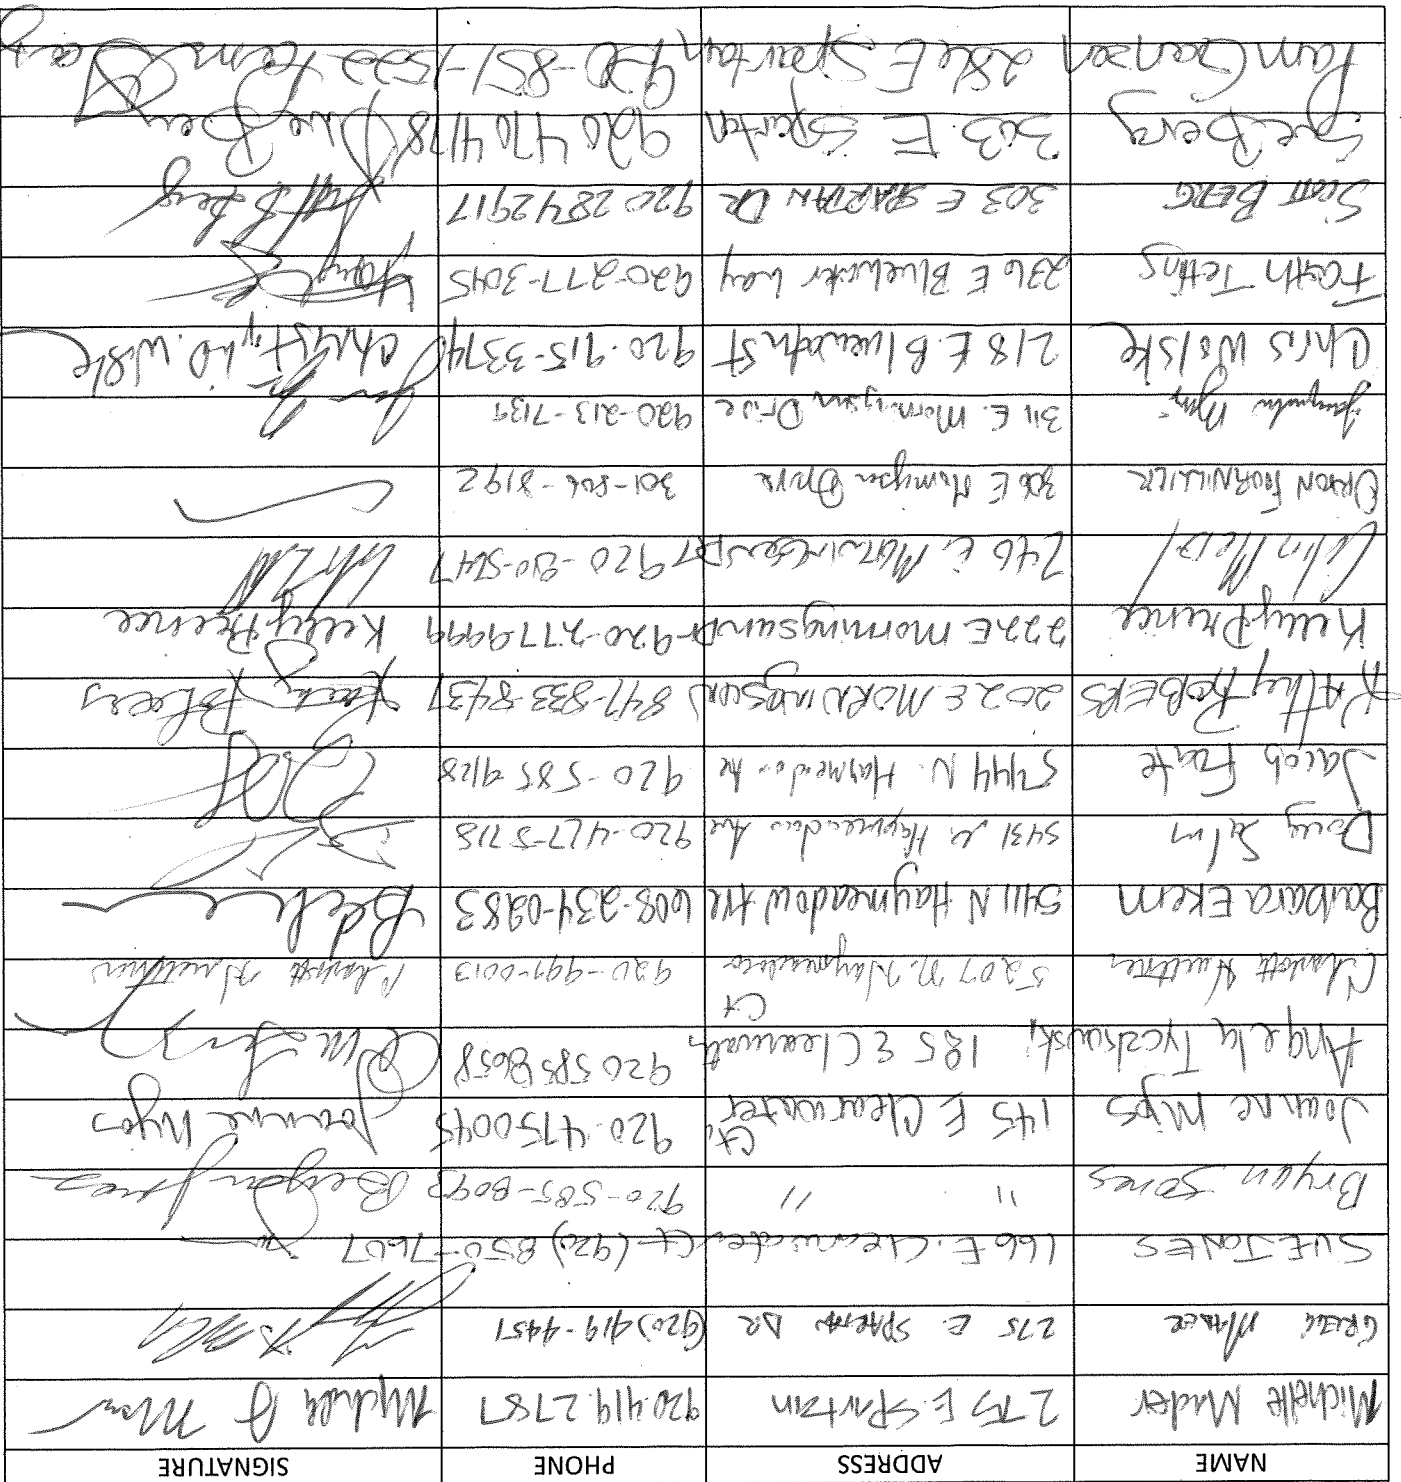 NAME ADDRESS PHONE SIGNATURE
Michelle Mader 275 E. Spartan 920.419.2787
GREGG MADER 275 E. SPARTAN DR (920) 419-4451
SUE JONES 166 E. Clearwater Ct (920) 850-7607
Bryan Jones " " 920-585-8093 Bryan Jones
Joanne Mijos 145 E Clearwater Ct, 920.4750045 Joanne Mijos
Angela Tyczkowski 185 E Clearwater Ct 920 585 8658
Charlotte 5207 N. Haymeadow 920-997-0013 Charlotte
Barbara Ekern 5411 N Haymeadow Ave 608-234-0283
Doug Salm 5431 N. Haymeadow Ave 920-427-5718
Jacob 5444 N. Haymeadow Ave 920-585-9128
Kathy ROBERS 202 E. MORNINGSUN 847-833-8437 Kathy
Kelly Prince 222 E Morningsun Dr 920-277 9999 Kelly Prince
246 E. MORNINGSUN DR 920-
306 E Morningsun Drive 301-806-8192
311 E. Morningsun Drive 920-213-7139
Chris Wolske 218 E. Bluewater St 920-915-3374
236 E Bluewater Way 920-277-3045
Scott BERG 303 E SPARTAN DR 920 284 2917
Sue Berg 303 E. Spartan 920 470 4178 Sue Berg
Pam 286 E Spartan 920-851-1522 Pam